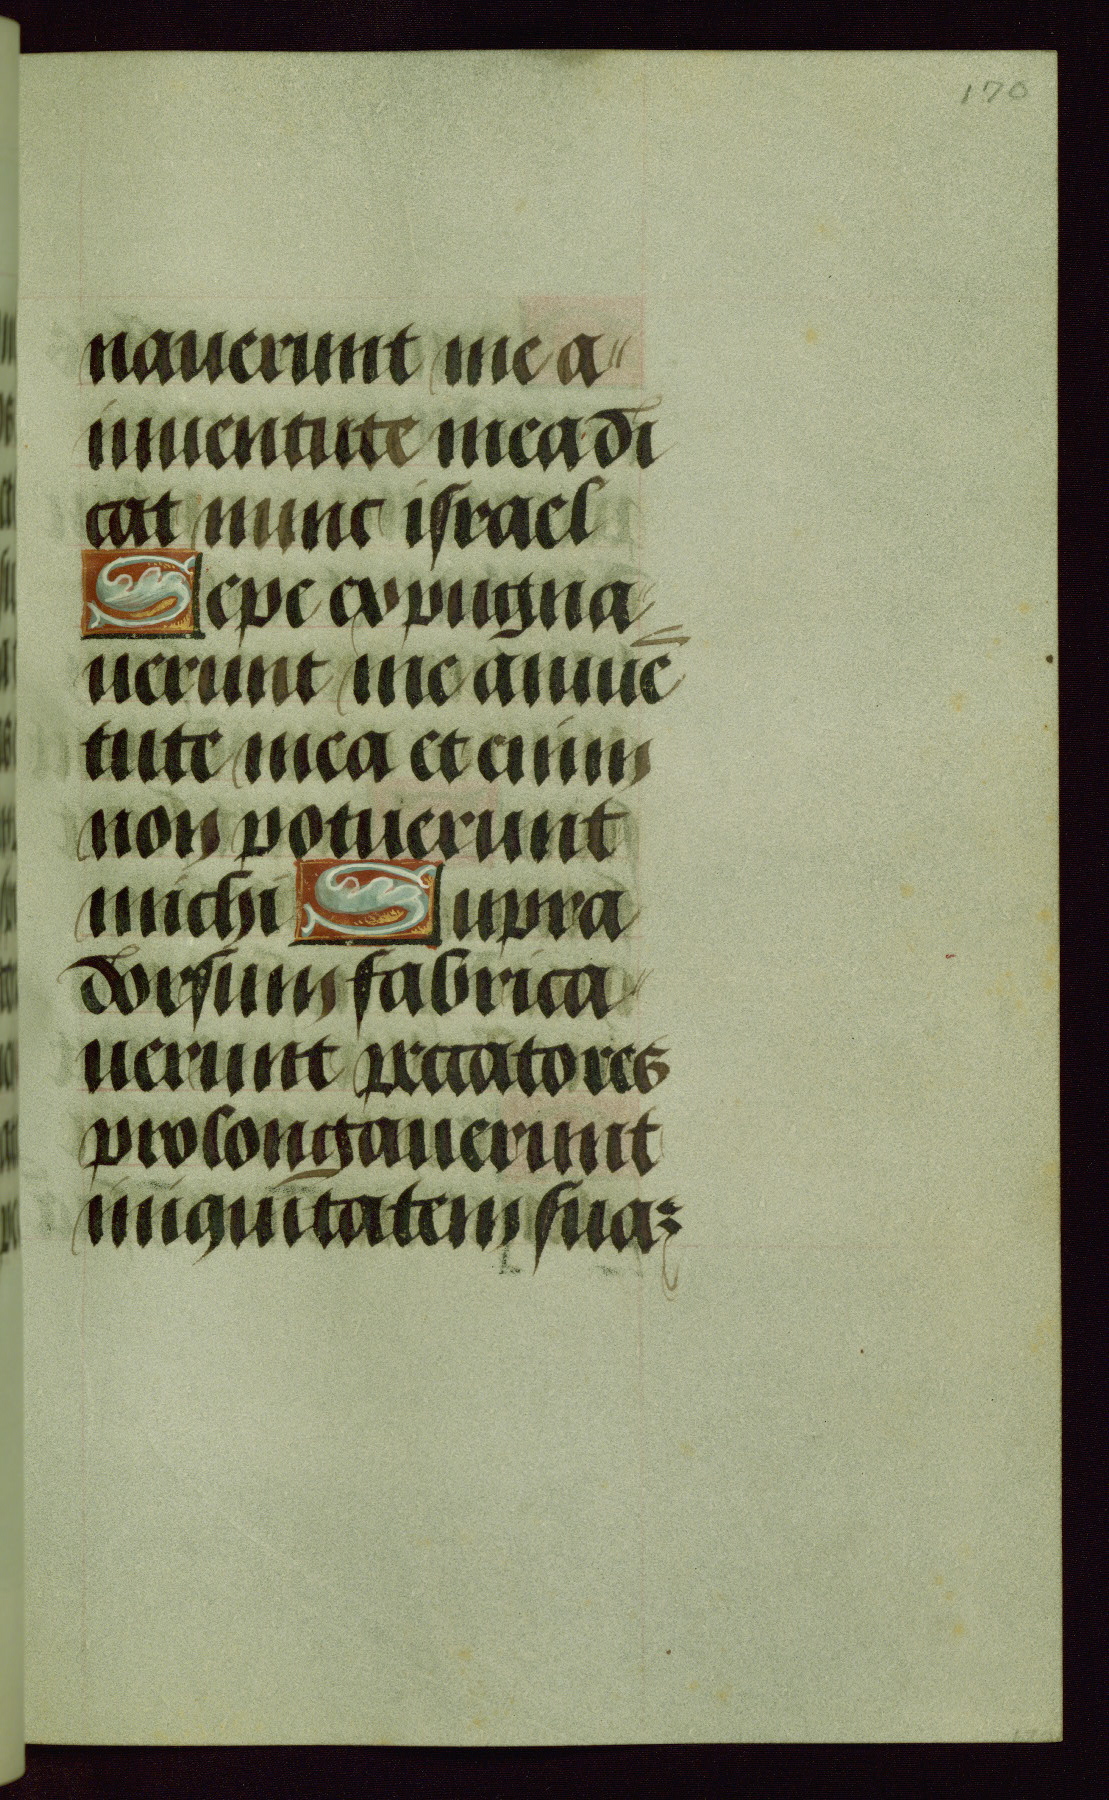 170
nauerunt me a〃
iuuentute mea di
cat nunc israel
Sepe expugna
uerunt me a iuuē
tute mea etenim
non potuerunt
michi Supra
dorsum fabrica〃
uerunt peccatores
prolongauerunt
iniquitatem suaꝫ